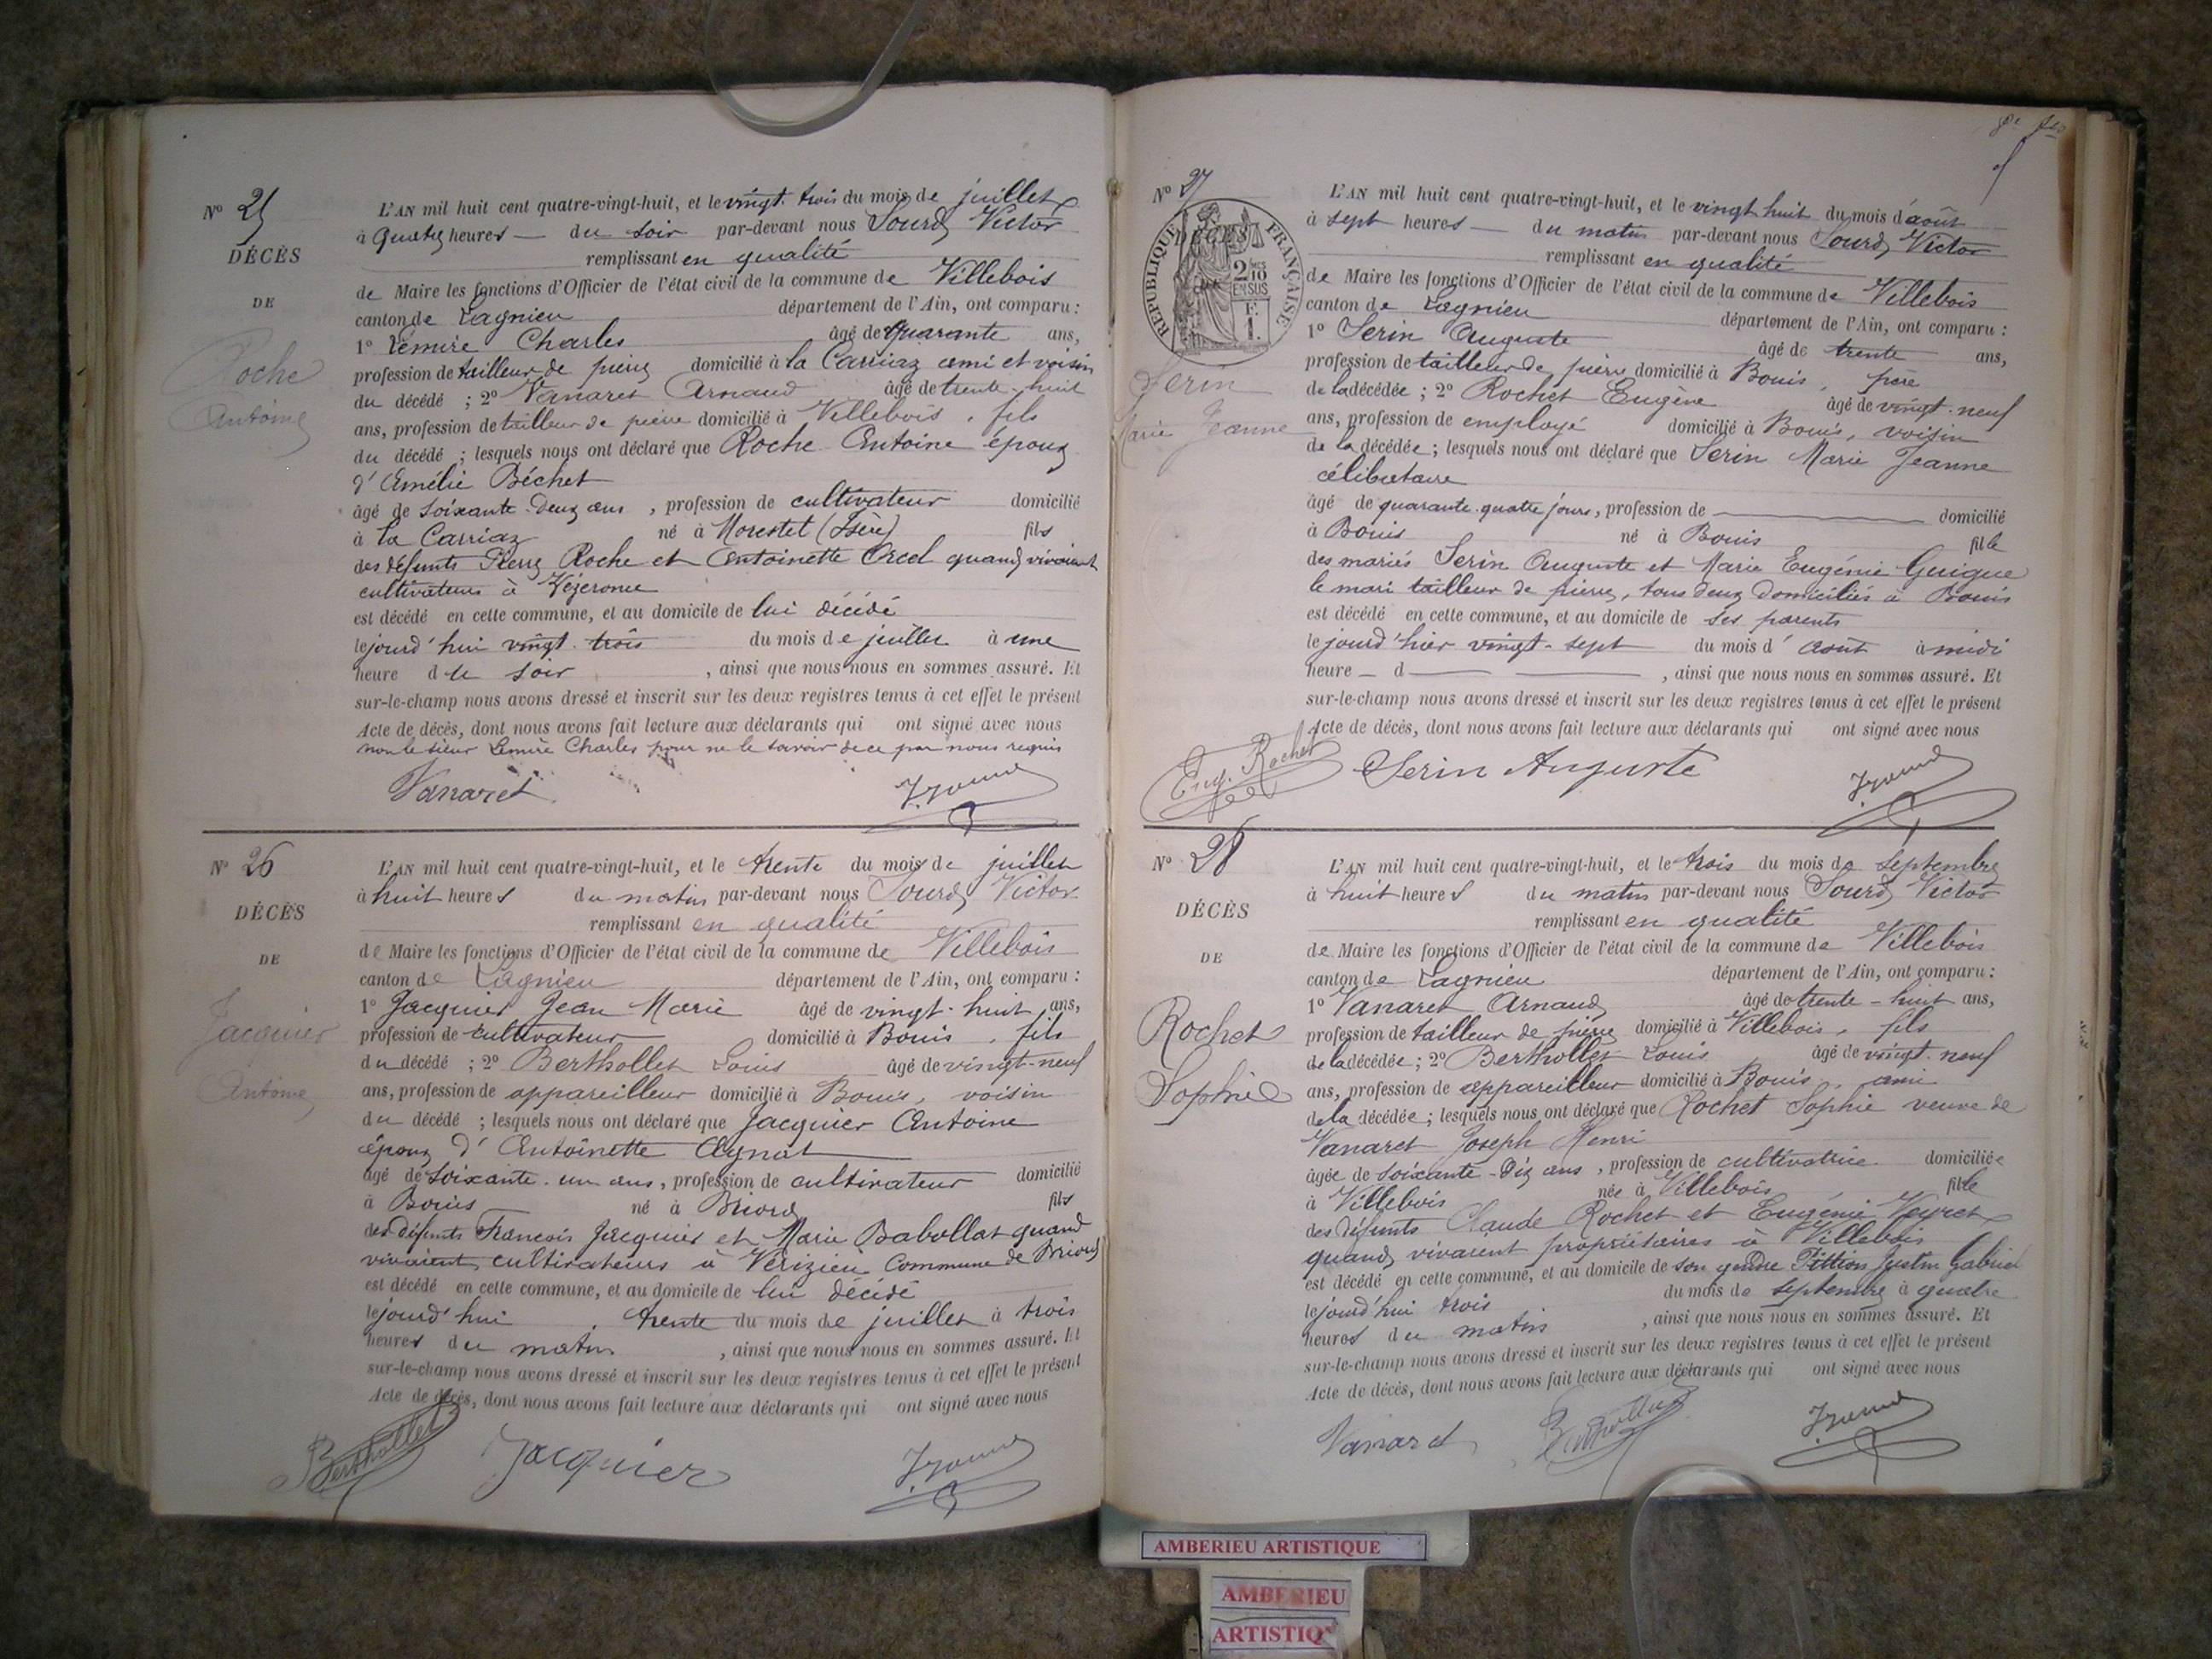 N° 25
DÉCÈS
DE
Roche
Antoine
L'AN mil huit cent quatre-vingt-huit, et le vingt trois du mois de juillet
à quatre heures du soir par-devant nous Sourd Victor
remplissant en qualité
de Maire les fonctions d'Officier de l'état civil de la commune de Villebois
canton de Lagnieu département de l'Ain, ont comparu :
1° Lemire Charles âgé de Quarante ans,
profession de tailleur de pierre domicilié à la Carriaz ami et voisin
du décédé ; 2° Vanaret Arnaud âgé de trente-huit
ans, profession de tailleur de pierre domicilié à Villebois, fils
du décédé ; lesquels nous ont déclaré que Roche Antoine époux
d'Amélie Béchet
âgé de soixante-deux ans, profession de cultivateur domicilié
à la Carriaz né à Morestel (Isère) fils
des défunts Pierre Roche et Antoinette Orcel quand vivaient
cultivateurs à Vézeronce
est décédé en cette commune, et au domicile de lui décédé
le jourd'hui vingt-trois du mois de juillet à une
heure du soir, ainsi que nous nous en sommes assuré. Et
sur-le-champ nous avons dressé et inscrit sur les deux registres tenus à cet effet le présent
Acte de décès, dont nous avons fait lecture aux déclarants qui ont signé avec nous
non le sieur Lemire Charles pour ne le savoir de ce par nous requis
Vanaret
N° 26
DÉCÈS
DE
Jacquier
Antoine
L'AN mil huit cent quatre-vingt-huit, et le trente du mois de juillet
à huit heures du matin par-devant nous Sourd Victor
remplissant en qualité
de Maire les fonctions d'Officier de l'état civil de la commune de Villebois
canton de Lagnieu département de l'Ain, ont comparu :
1° Jacquier Jean Marie âgé de vingt-huit ans,
profession de cultivateur domicilié à Bouis, fils
du décédé ; 2° Berthollet Louis âgé de vingt-neuf
ans, profession de appareilleur domicilié à Bouis, voisin
du décédé ; lesquels nous ont déclaré que Jacquier Antoine
époux d'Antoinette Agnat
âgé de soixante-un ans, profession de cultivateur domicilié
à Bouis né à Briord fils
des défunts Francois Jacquier et Marie Babollat quand
vivaient cultivateurs à Vérizieu Commune de Briord
est décédé en cette commune, et au domicile de lui décédé
le jourd'hui trente du mois de juillet à trois
heures du matin, ainsi que nous nous en sommes assuré. Et
sur-le-champ nous avons dressé et inscrit sur les deux registres tenus à cet effet le présent
Acte de décès, dont nous avons fait lecture aux déclarants qui ont signé avec nous
Berthollet Jacquier
N° 27
RÉPUBLIQUE FRANÇAISE
2/10 EN SUS
1 F.
Serin
Marie Jeanne
L'AN mil huit cent quatre-vingt-huit, et le vingt huit du mois d'août
à sept heures du matin par-devant nous Sourd Victor
remplissant en qualité
de Maire les fonctions d'Officier de l'état civil de la commune de Villebois
canton de Lagnieu département de l'Ain, ont comparu :
1° Serin Auguste âgé de trente ans,
profession de tailleur de pierre domicilié à Bouis, père
de la décédée ; 2° Rochet Eugène âgé de vingt-neuf
ans, profession de employé domicilié à Bouis, voisin
de la décédée ; lesquels nous ont déclaré que Serin Marie Jeanne
célibataire
âgé de quarante-quatre jours, profession de domicilié
à Bouis né à Bouis fille
des mariés Serin Auguste et Marie Eugénie Guigue
le mari tailleur de pierre, tous deux domiciliés à Bouis
est décédé en cette commune, et au domicile de ses parents
le jourd'hier vingt-sept du mois d'août à midi
heure d , ainsi que nous nous en sommes assuré. Et
sur-le-champ nous avons dressé et inscrit sur les deux registres tenus à cet effet le présent
Acte de décès, dont nous avons fait lecture aux déclarants qui ont signé avec nous
Eug. Rochet Serin Auguste
N° 28
DÉCÈS
DE
Rochet
Sophie
L'AN mil huit cent quatre-vingt-huit, et le trois du mois de septembre
à huit heures du matin par-devant nous Sourd Victor
remplissant en qualité
de Maire les fonctions d'Officier de l'état civil de la commune de Villebois
canton de Lagnieu département de l'Ain, ont comparu :
1° Vanaret Arnaud âgé de trente-huit ans,
profession de tailleur de pierre domicilié à Villebois, fils
de la décédée ; 2° Berthollet Louis âgé de vingt-neuf
ans, profession de appareilleur domicilié à Bouis, ami
de la décédée ; lesquels nous ont déclaré que Rochet Sophie veuve de
Vanaret Joseph Henri
âgée de soixante-dix ans, profession de cultivatrice domiciliée
à Villebois née à Villebois fille
des défunts Claude Rochet et Eugénie Veyret
quand vivaient propriétaires à Villebois
est décédé en cette commune, et au domicile de son gendre Pittion Justin Gabriel
le jourd'hui trois du mois de septembre à quatre
heures du matin, ainsi que nous nous en sommes assuré. Et
sur-le-champ nous avons dressé et inscrit sur les deux registres tenus à cet effet le présent
Acte de décès, dont nous avons fait lecture aux déclarants qui ont signé avec nous
Vanaret Berthollet
AMBERIEU ARTISTIQUE
AMBERIEU
ARTISTIQ